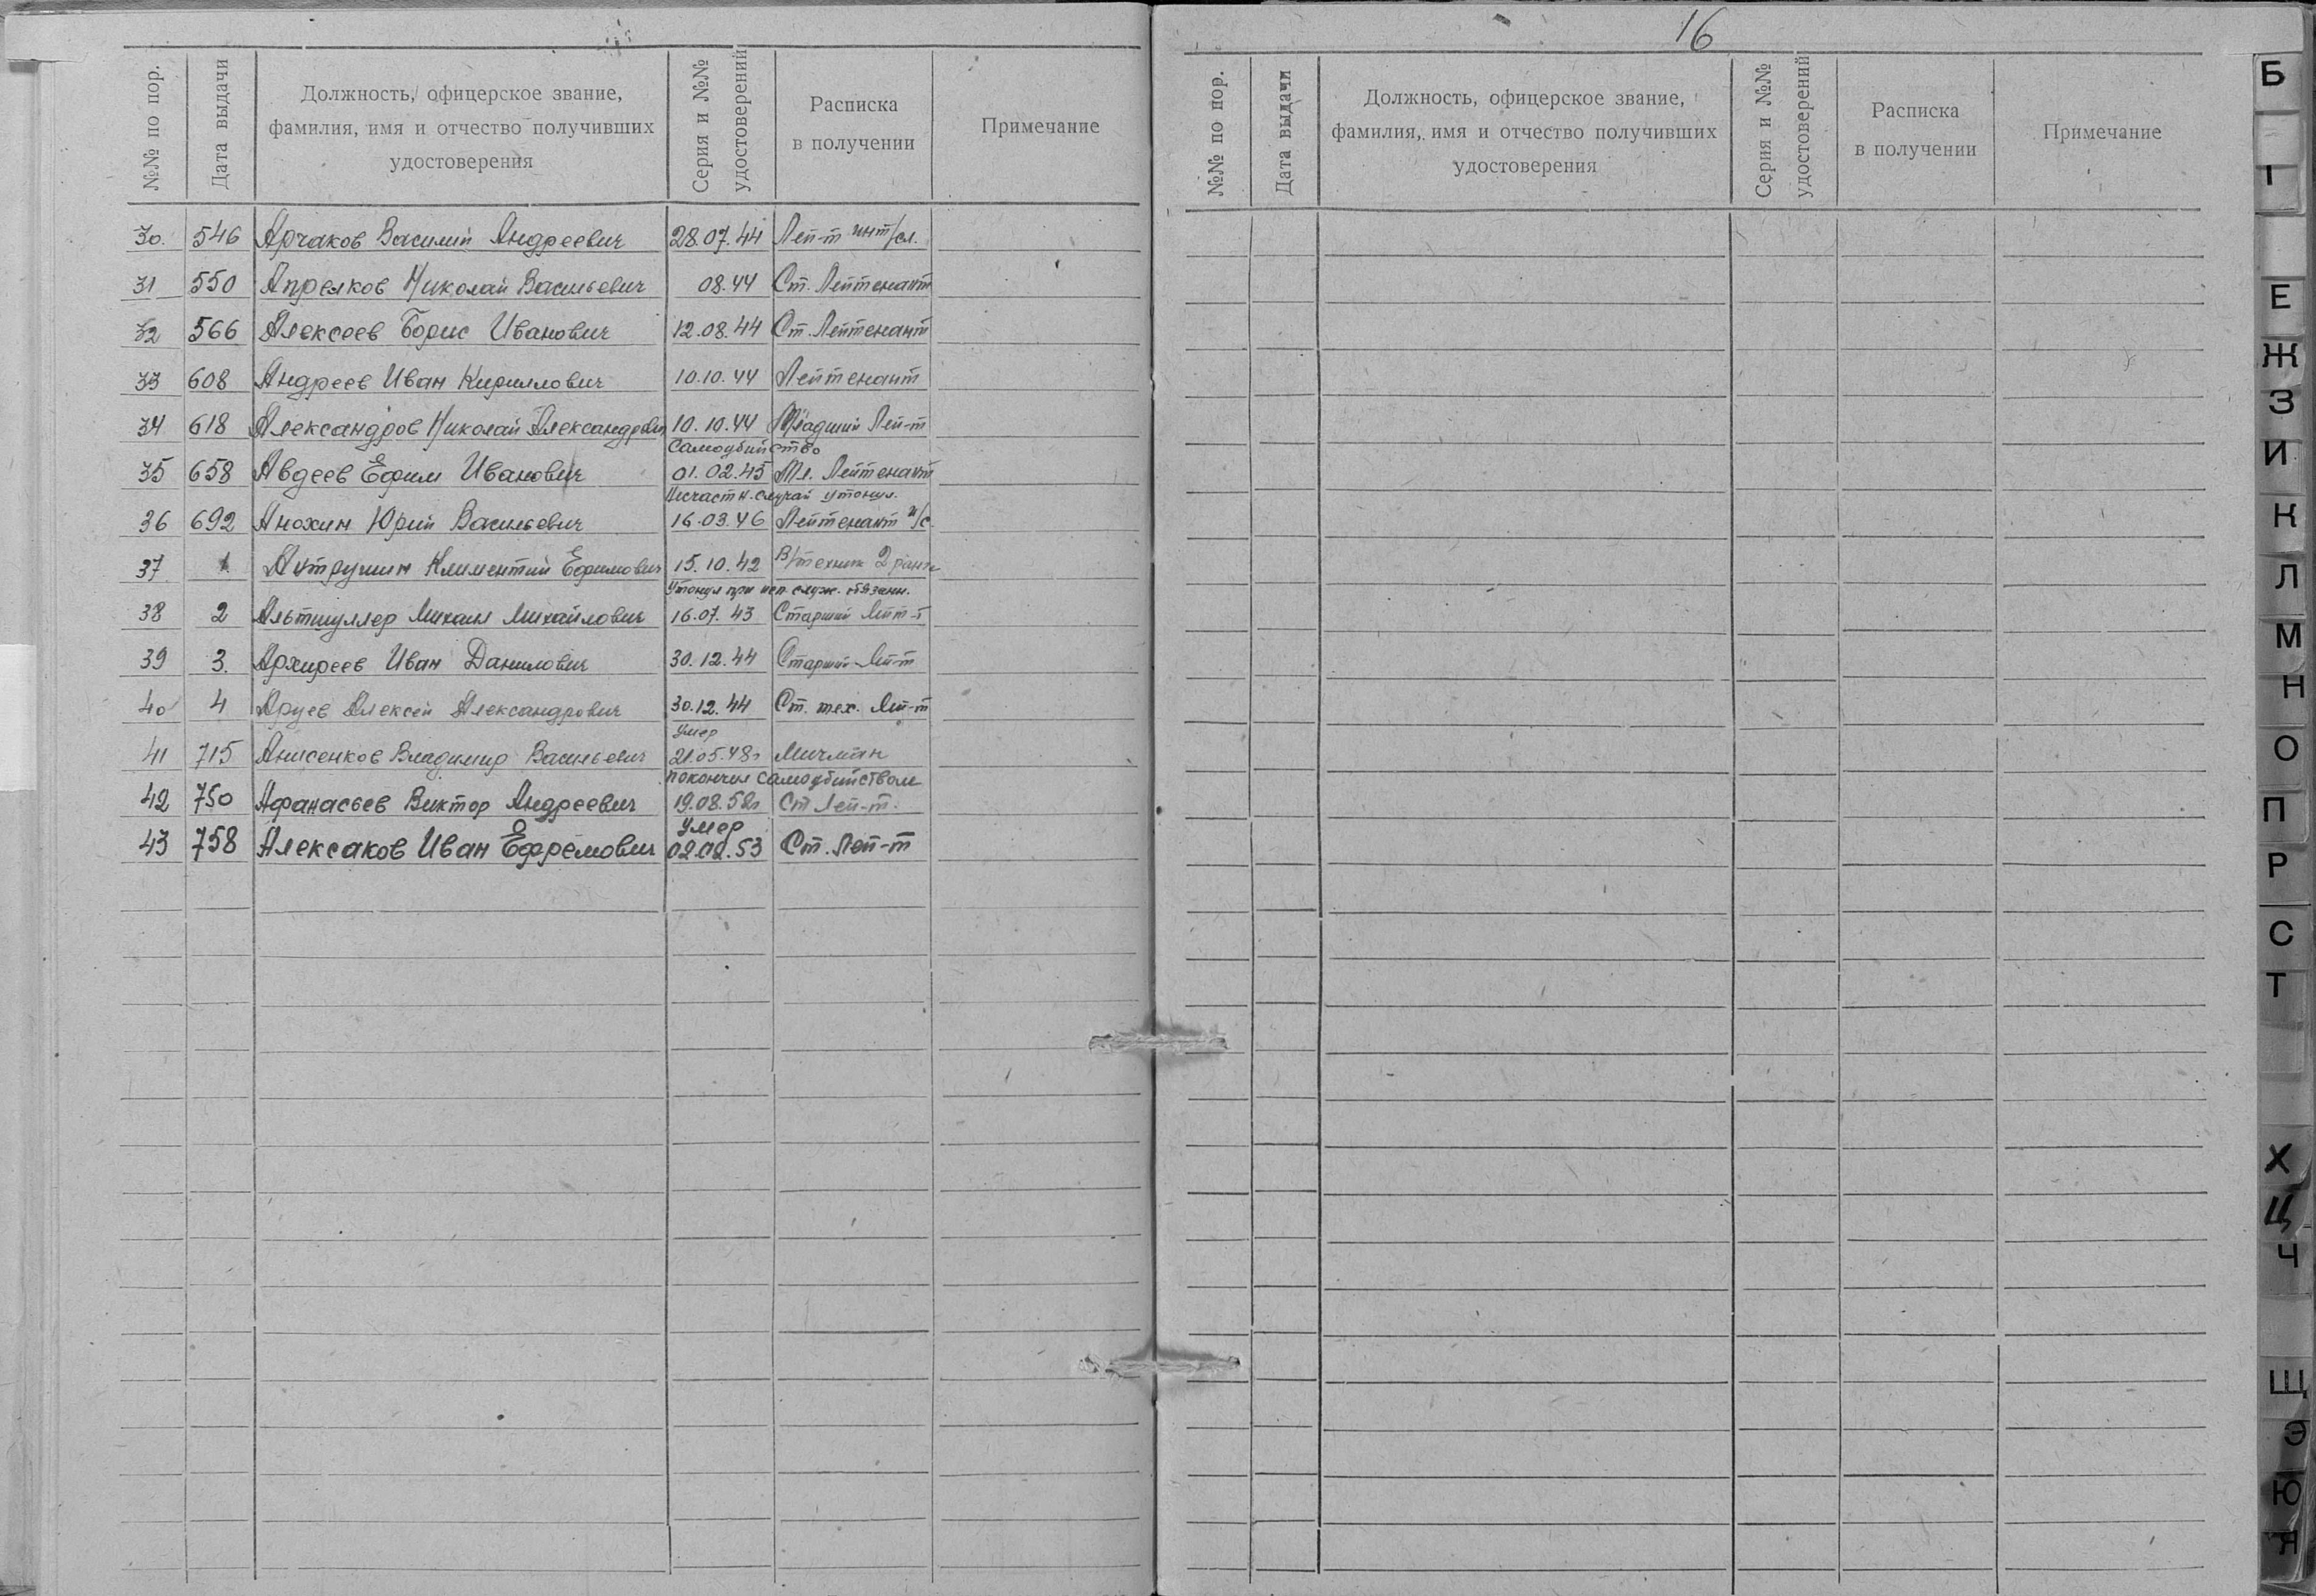 16
№№ по пор. Дата выдачи Должность, офицерское звание, фамилия, имя и отчество получивших удостоверения Серия и №№ удостоверений Расписка в получении Примечание
30. 546 Арчаков Василий Андреевич 28.07.44 Лей-т инт/сл.
31 550 Апрелков Николай Васильевич 08.44 Ст. Лейтенант
32 566 Алексеев Борис Иванович 12.08.44 Ст. Лейтенант
33 608 Андреев Иван Кириллович 10.10.44 Лейтенант
34 618 Александров Николай Александрович 10.10.44 Младший Лей-т
Самоубийство
35 658 Авдеев Ефим Иванович 01.02.45 Мл. Лейтенант
Несчастн. случай утонул.
36 692 Анохин Юрий Васильевич 16.03.46 Лейтенант и/с
37 1 Климентий Ефимович 15.10.42 В/техник 2 ранга
Утонул при исп. служ. обязанн.
38 2 Альтшуллер Михаил Михайлович 16.07.43 Старший Лейт-т
39 3. Архиреев Иван Данилович 30.12.44 Старший Лей-т
40 4 Аруев Алексей Александрович 30.12.44 Ст. тех. Лей-т
Умер
41 715 Анисенков Владимир Васильевич 21.05.48г Мичман
покончил самоубийством
42 750 Афанасьев Виктор Андреевич 19.08.52г Ст Лей-т.
Умер
43 758 Алексаков Иван Ефремович 02.02.53 Ст. Лей-т
№№ по пор. Дата выдачи Должность, офицерское звание, фамилия, имя и отчество получивших удостоверения Серия и №№ удостоверений Расписка в получении Примечание
Б
Е
Ж
З
И
К
Л
М
Н
О
П
Р
С
Т
Х
Ц
Ч
Щ
Э
Ю
Я